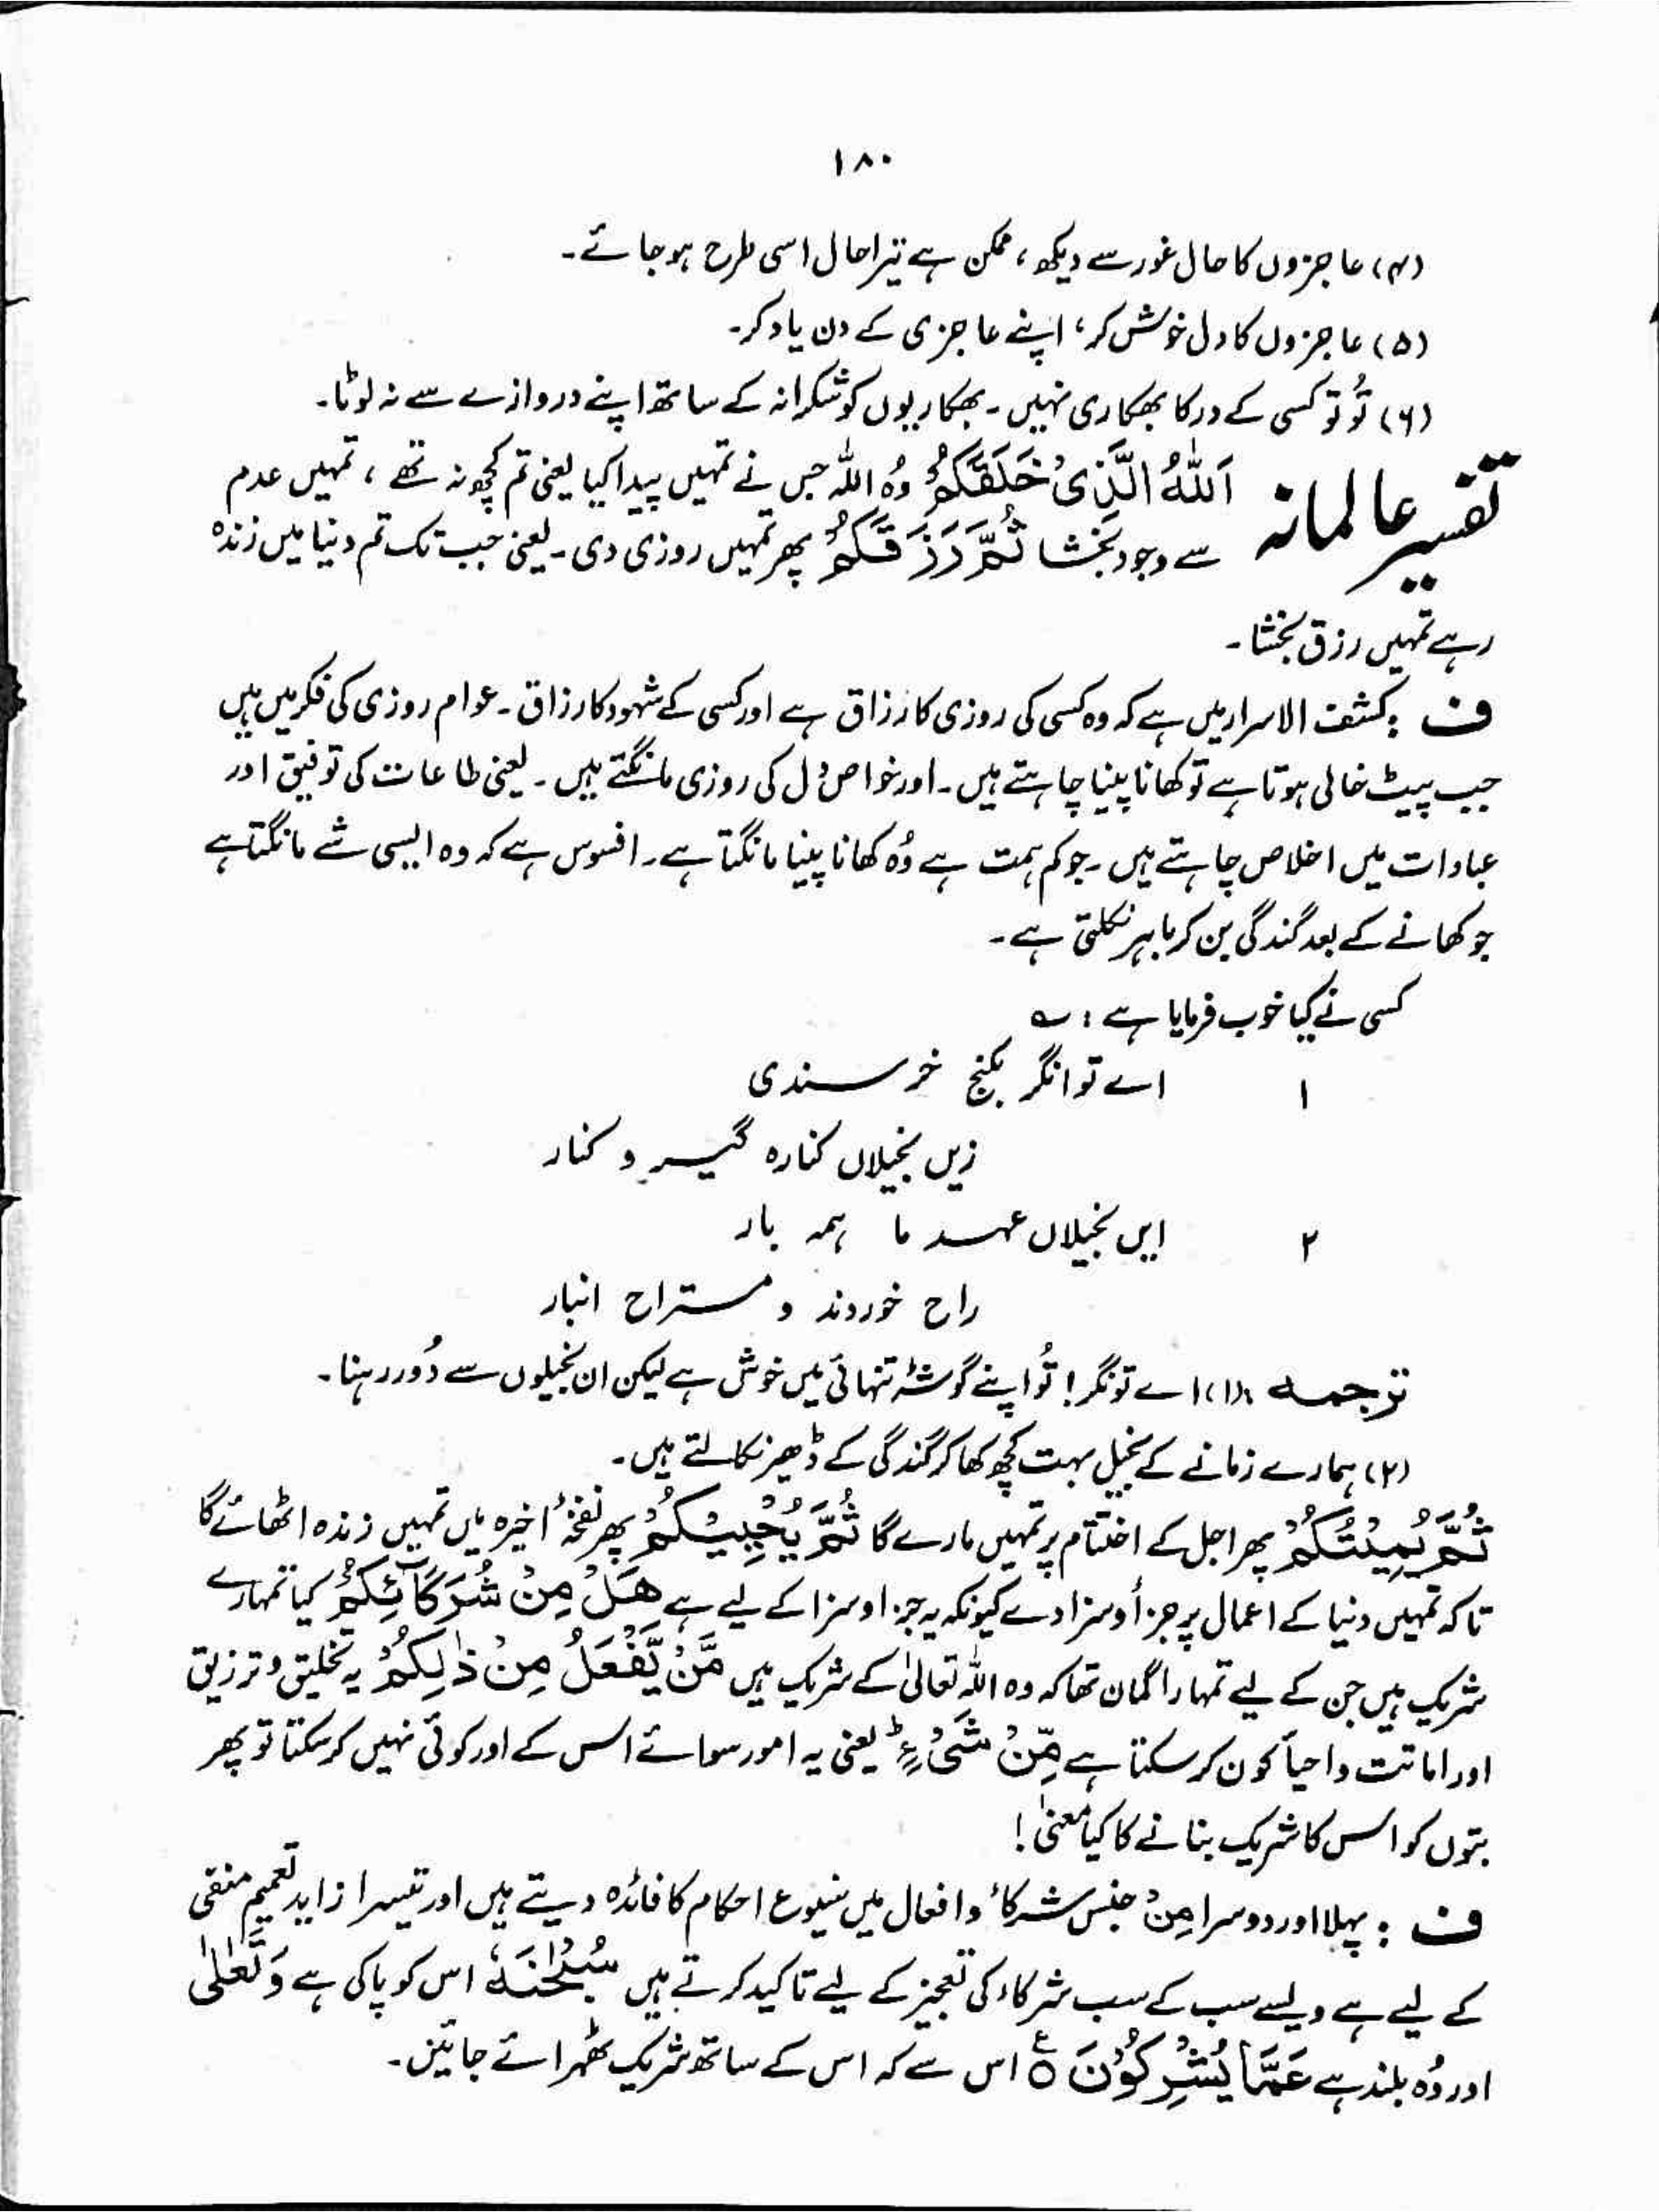 ۱۸۰
(۴) عاجزوں کا حال غور سے دیکھ، ممکن ہے تیرا حال اسی طرح ہو جائے۔
(۵) عاجزوں کا دل خوش کر، اپنے عاجزی کے دن یاد کر۔
(۶) تُو تو کسی کے در کا بھکاری نہیں۔ بھکاریوں کو شکرانہ کے ساتھ اپنے دروازے سے نہ لوٹا۔
تفسیر عالمانہ اَللّٰهُ الَّذِیْ خَلَقَكُمْ وُہ اللہ جس نے تمہیں پیدا کیا یعنی تم کچھ نہ تھے، تمہیں عدم
سے وجود بخشا ثُمَّ رَزَقَكُمْ پھر تمہیں روزی دی۔ یعنی جب تک تم دنیا میں زندہ
رہے تمہیں رزق بخشا۔
ف: کشف الاسرار میں ہے کہ وہ کسی کی روزی کا رزاق ہے اور کسی کے شہود کا رزاق۔ عوام روزی کی فکر میں ہیں
جب پیٹ خالی ہوتا ہے تو کھانا پینا چاہتے ہیں۔ اور خواص دل کی روزی مانگتے ہیں۔ یعنی طاعات کی توفیق اور
عبادات میں اخلاص چاہتے ہیں۔ جو کم ہمت ہے وُہ کھانا پینا مانگتا ہے۔ افسوس ہے کہ وہ ایسی شے مانگتا ہے
جو کھانے کے بعد گندگی بن کر باہر نکلتی ہے۔
کسی نے کیا خوب فرمایا ہے: ؎
۱ اے توانگر بکنج خرسندی
زیں بخیلاں کنارہ گیر و کنار
۲ ایں بخیلاں عہد ما ہمہ بار
راح خوردند و مستراح انبار
ترجمہ: (۱) اے تونگر! تُو اپنے گوشۂ تنہائی میں خوش ہے لیکن ان بخیلوں سے دُور رہنا۔
(۲) ہمارے زمانے کے بخیل بہت کچھ کھا کر گندگی کے ڈھیر نکالتے ہیں۔
ثُمَّ یُمِیْتُكُمْ پھر اجل کے اختتام پر تمہیں مارے گا ثُمَّ یُحْیِیْكُمْ پھر نفخۂ اخیرہ میں تمہیں زندہ اٹھائے گا
تاکہ تمہیں دنیا کے اعمال پر جزأ و سزا دے کیونکہ یہ جزا و سزا کے لیے ہے هَلْ مِنْ شُرَكَآئِكُمْ کیا تمہارے
شریک ہیں جن کے لیے تمہارا گمان تھا کہ وہ اللہ تعالیٰ کے شریک ہیں مَّنْ یَّفْعَلُ مِنْ ذٰلِكُمْ یہ تخلیق و ترزیق
اور اماتت و احیأ کون کر سکتا ہے مِّنْ شَیْءٍ ؕ یعنی یہ امور سوائے اس کے اور کوئی نہیں کر سکتا تو پھر
بتوں کو اس کا شریک بنانے کا کیا معنٰی!
ف: پہلا اور دوسرا مِنْ جنس شرکاء و افعال میں شیوع احکام کا فائدہ دیتے ہیں اور تیسرا زاید تعمیم منفی
کے لیے ہے ویسے سب کے سب شرکاء کی تعجیز کے لیے تاکید کرتے ہیں سُبْحٰنَهٗ اس کو پاکی ہے وَتَعٰلٰی
اور وُہ بلند ہے عَمَّا یُشْرِكُوْنَ ۠ اس سے کہ اس کے ساتھ شریک ٹھہرائے جائیں۔